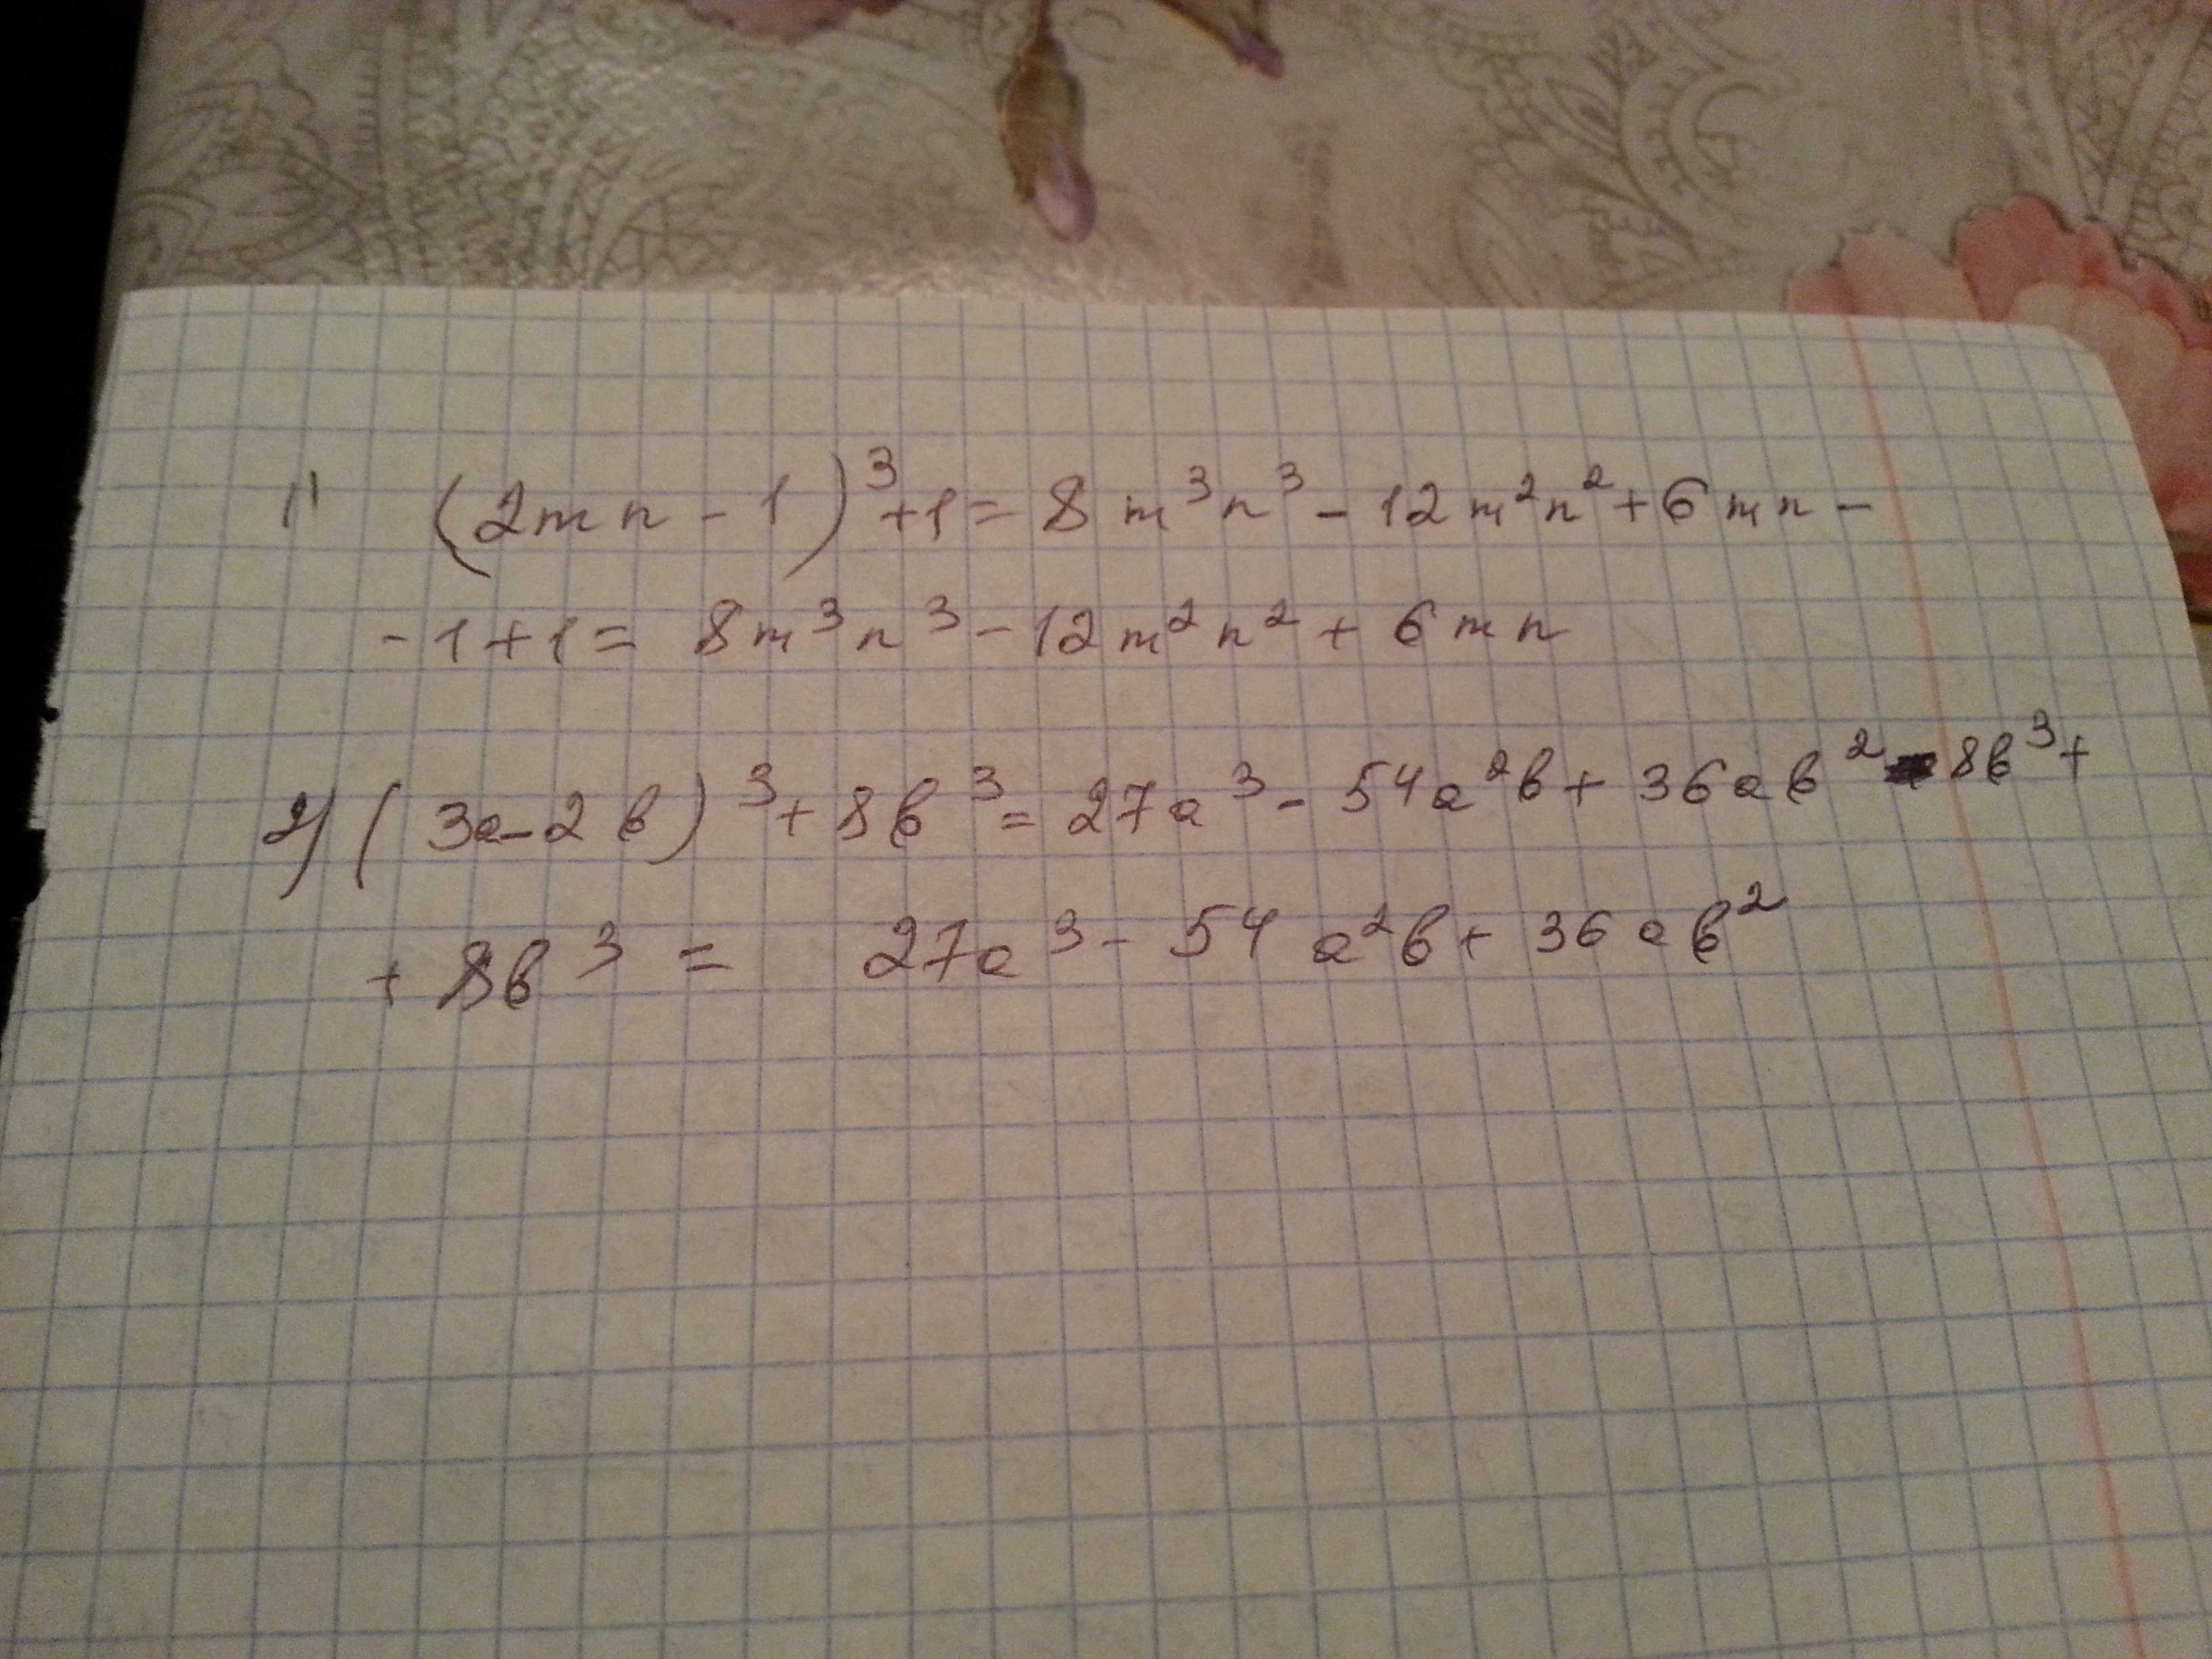 1) (2mn - 1)³+1 = 8m³n³ - 12m²n² + 6mn -
- 1 + 1 = 8m³n³ - 12m²n² + 6mn
2) (3a - 2b)³ + 8b³ = 27a³ - 54a²b + 36ab² - 8b³ +
+ 8b³ = 27a³ - 54a²b + 36ab²